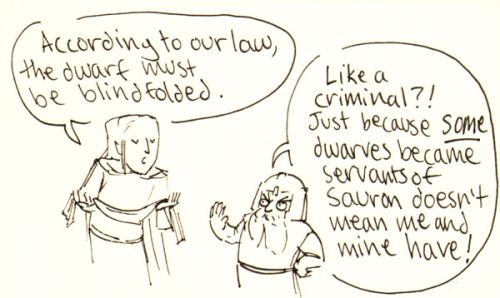 According to our law,
the dwarf must
be blindfolded.
Like a
criminal?!
Just because some
dwarves became
servants of
Sauron doesn't
mean me and
mine have!